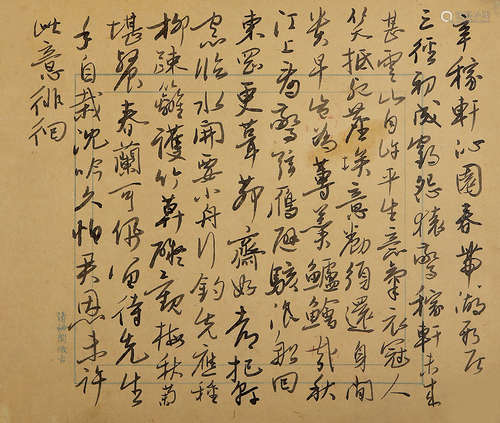 辛稼軒沁園春帶湖新居
三徑初成鶴怨猿驚稼軒未來
甚雲山自許平生意氣衣冠人
笑抵死塵埃意勌須還身閒
貴早豈為蓴羹鱸鱠哉秋
江上看驚弦鴈避駭浪船回
東岡更葺茆齋好都把軒
窓臨水開要小舟行釣先應種
柳疎籬護竹莫礙觀梅秋菊
堪餐春蘭可佩留待先生
手自栽沈吟久怕君恩未許
此意徘徊